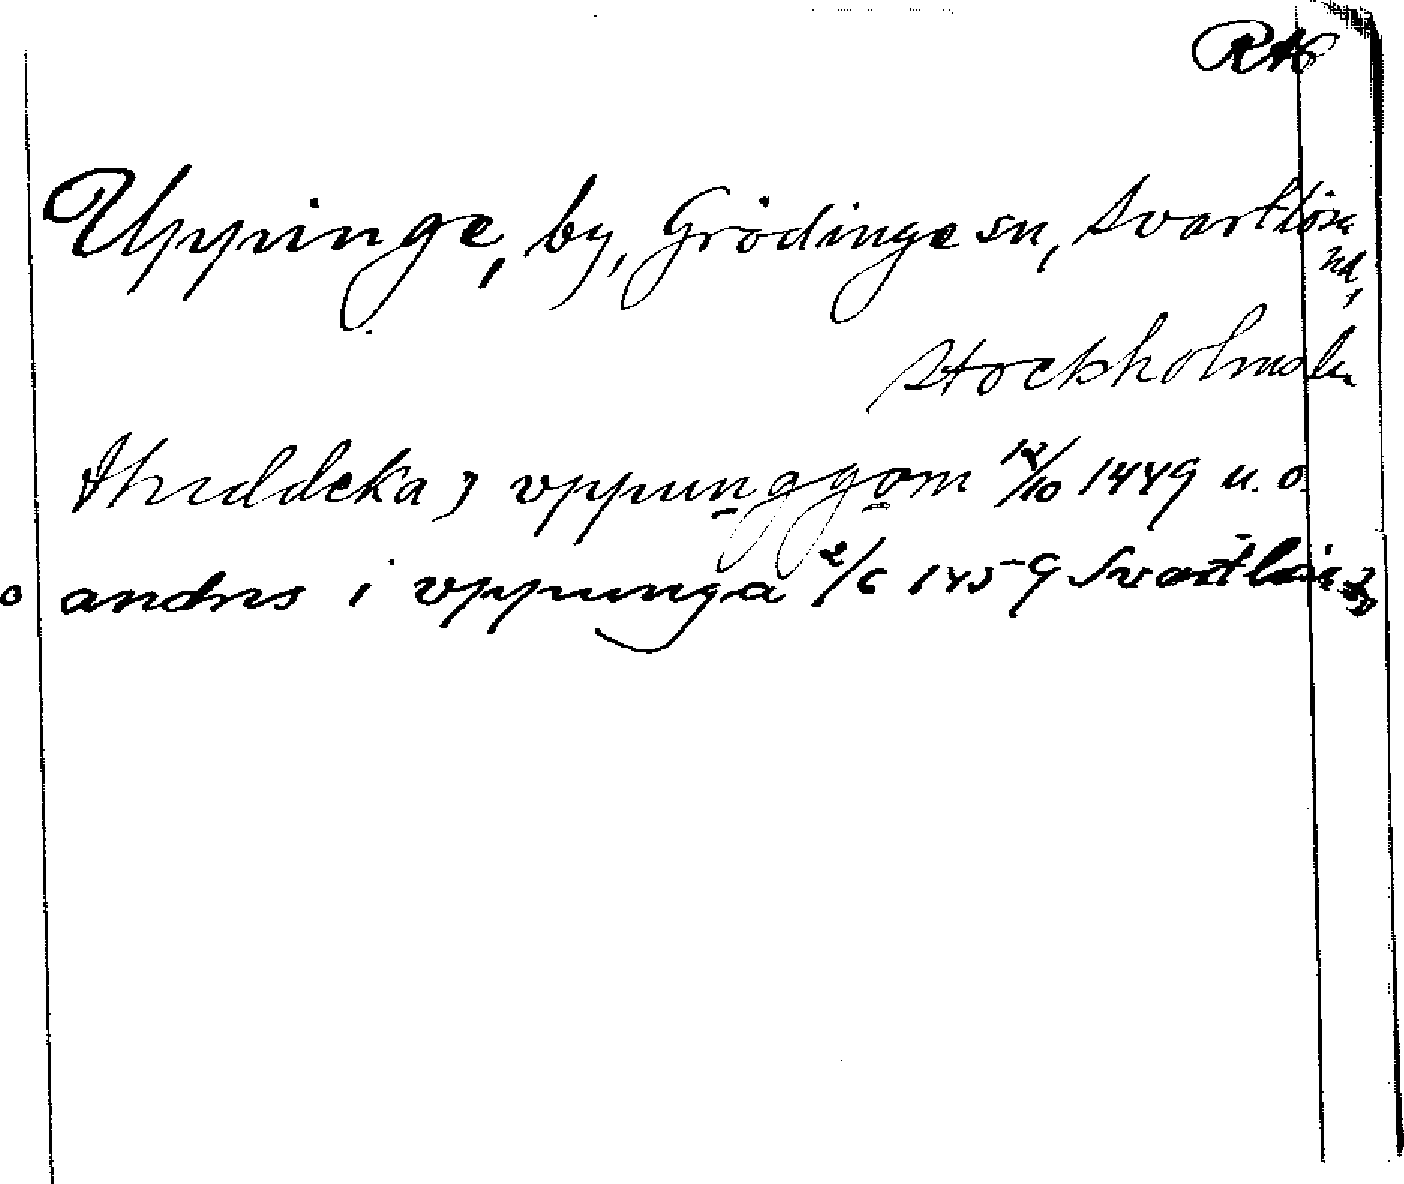 RA
Uppinge, by, Grödinge sn, Svartlösa
hd,
Stockholms ln
Thuddeka j vppunggom 12/10 1449 u. o.
andrs i vppunga 2/6 1459 Svartlösa